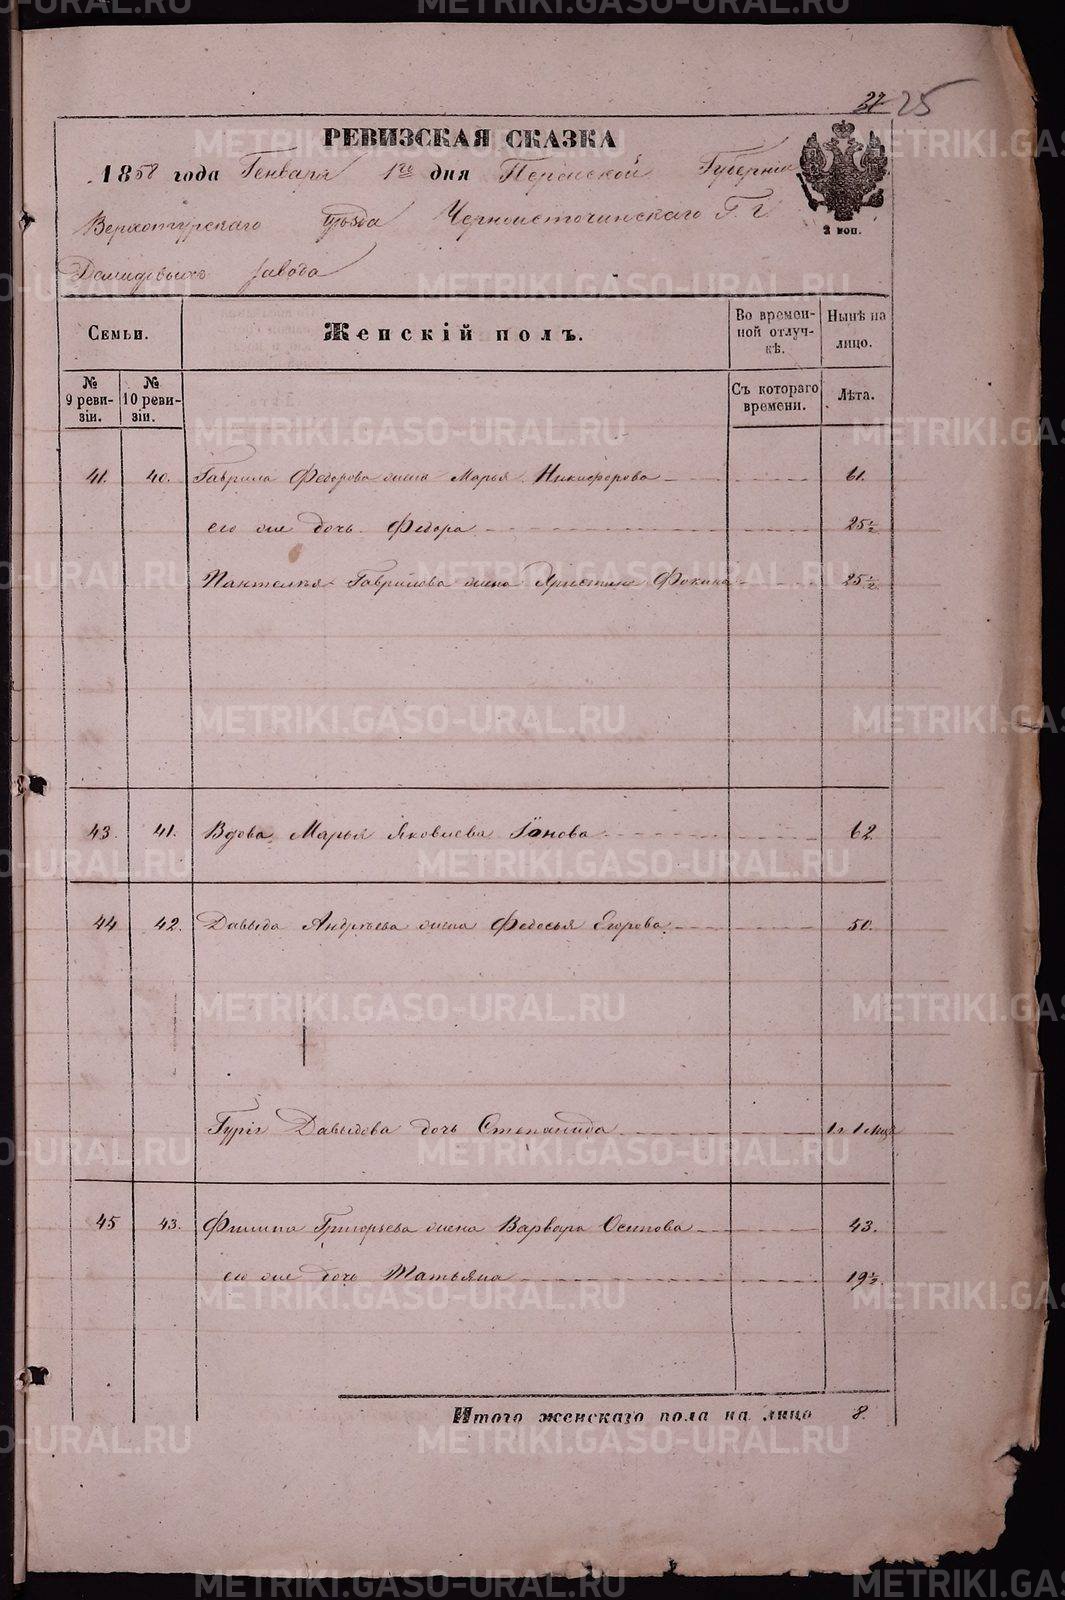 27 25
РЕВИЗСКАЯ СКАЗКА
1858 года Генваря 1го дня Пермской Губерніи
Верхотурскаго Уѣзда Черноисточинскаго Г. Г.
Демидовыхъ завода
Семьи.
Женскій полъ.
Во времен-
ной отлуч-
кѣ.
Нынѣ на
лицо.
2 коп.
№
9 реви-
зіи.
№
10 реви-
зіи.
Съ котораго
времени.
Лѣта.
41. 40. Гаврила Федорова жена Марья Никифорова 61.
его же дочь Федора 25 1/2
Пантелѣя Гаврилова жена Христина Фокина 25 1/2
43. 41. Вдова Марья Яковлева 62.
44 42. Давыда Андрѣева жена Федосья Егорова 50.
Гурія Давыдова дочь Степанида 1 г 1 мца
45 43. Филипа Григорьева жена Варвара Осипова 43.
его же дочь Татьяна 19 1/2
Итого женскаго пола на лицо 8.
METRIKI.GASO-URAL.RU